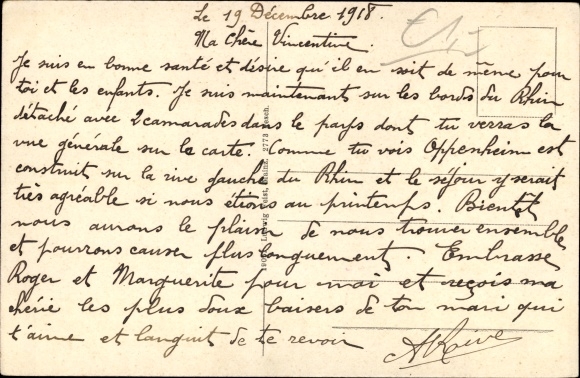 Le 19 Décembre 1918.
Ma Chère Vincentine.
Je suis en bonne santé et désire qu'il en soit de même pour
toi et les enfants. Je suis maintenant sur les bords du Rhin
détaché avec 2 camarades dans le pays dont tu verras la
vue générale sur la carte. Comme tu vois Oppenheim est
construit sur la rive gauche du Rhin et le séjour y serait
très agréable si nous étions au printemps. Bientôt
nous aurons le plaisir de nous trouver ensemble
et pourrons causer plus longuement. Embrasse
Roger et Marguerite pour moi et reçois ma
chérie les plus doux baisers de ton mari qui
t'aime et languit de te revoir
Ludwig 2773 gesch.